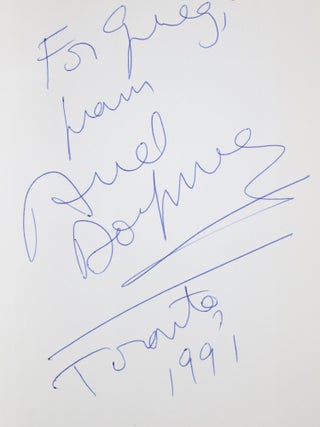 For Greg,
from
Ariel
Dorfman
Toronto,
1991